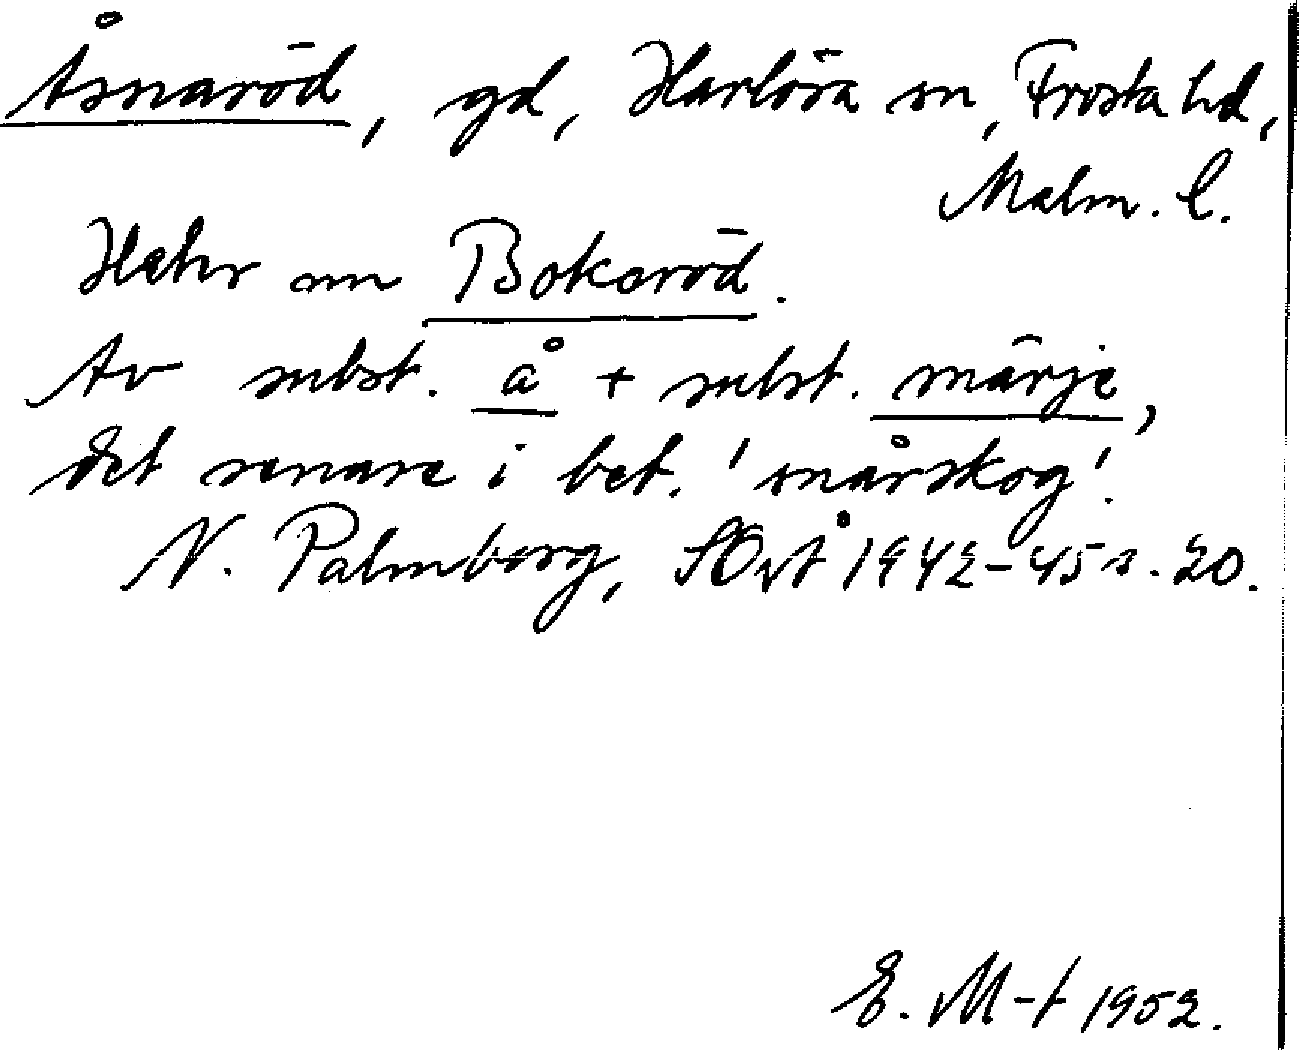 Åsnaröd, gd, Harlösa sn, Frosta hd,
Malm. l.
Hehr nn Boksröd.
Av subst. å + subst. snärje,
det senare i bet. 'snårskog'.
N. Palmborg, SOrtÅ 1942-45 s. 20.
E. M-t 1952.